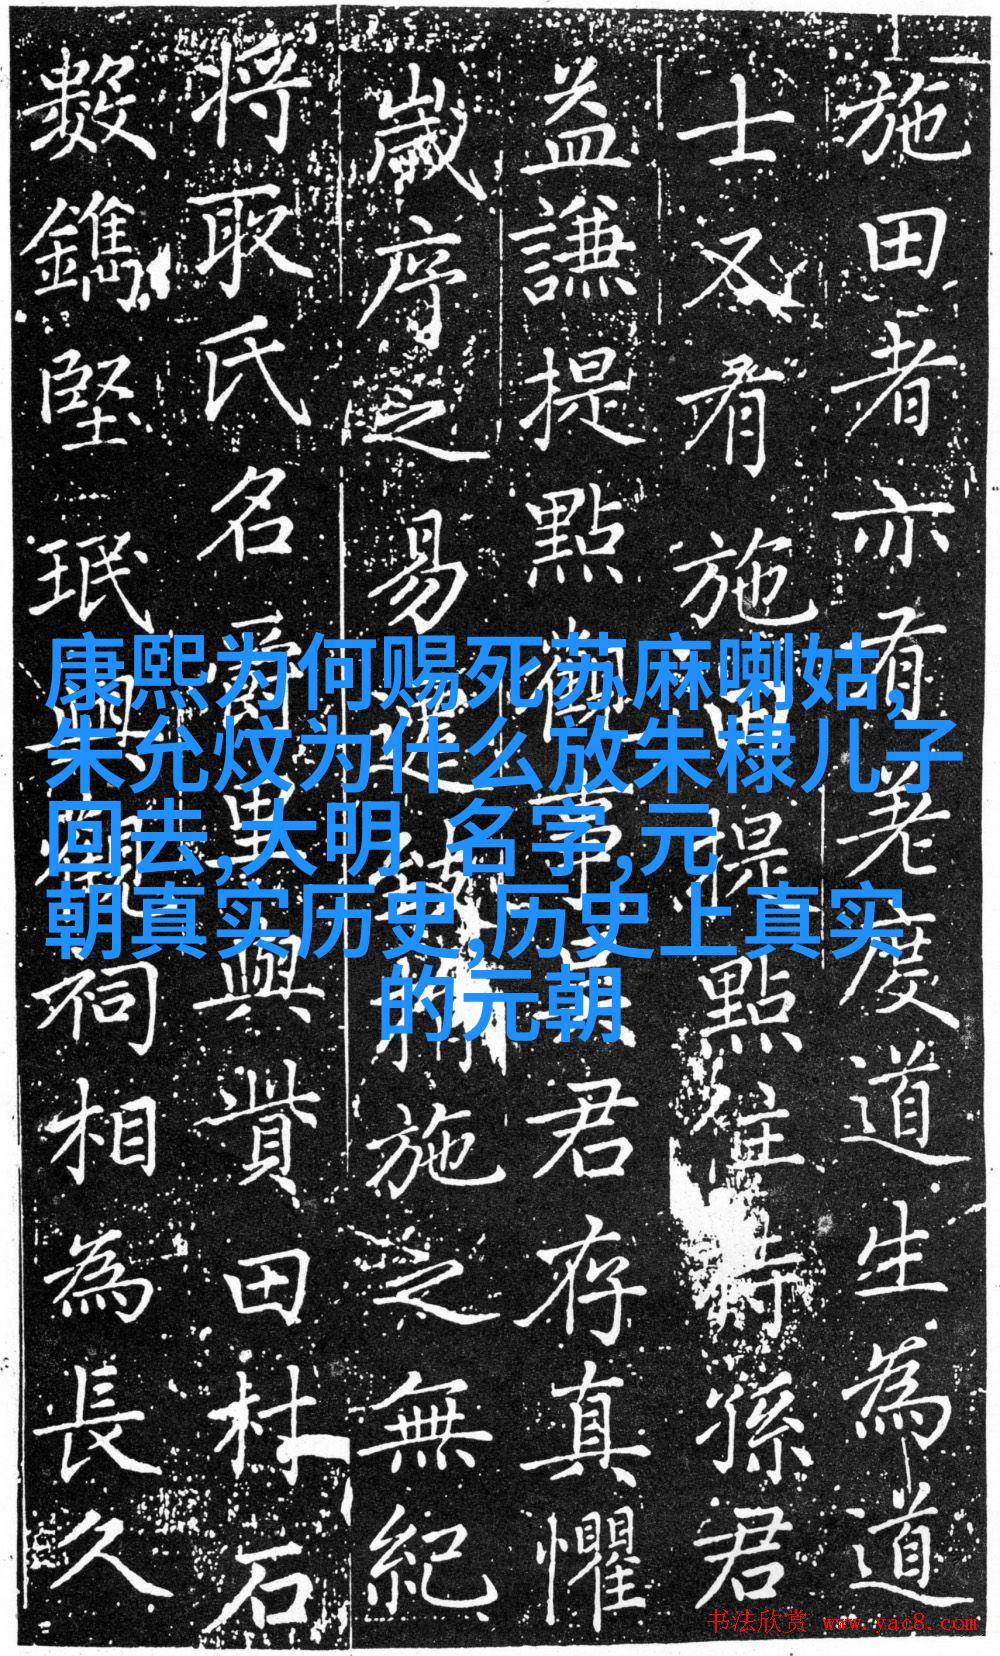 施田者亦有老度道生為道
士又有施田提點住持孫君
益謙提點事君存真懼
歲序之易遷施之無紀
将取氏名爵里與貲田杜石
数鐫堅珉與觀祠相為長久
康熙为何赐死苏麻喇姑,
朱允炆为什么放朱棣儿子
回去,大明 名字,元
朝真实历史,历史上真实
的元朝
书法欣赏 www.yac8.com